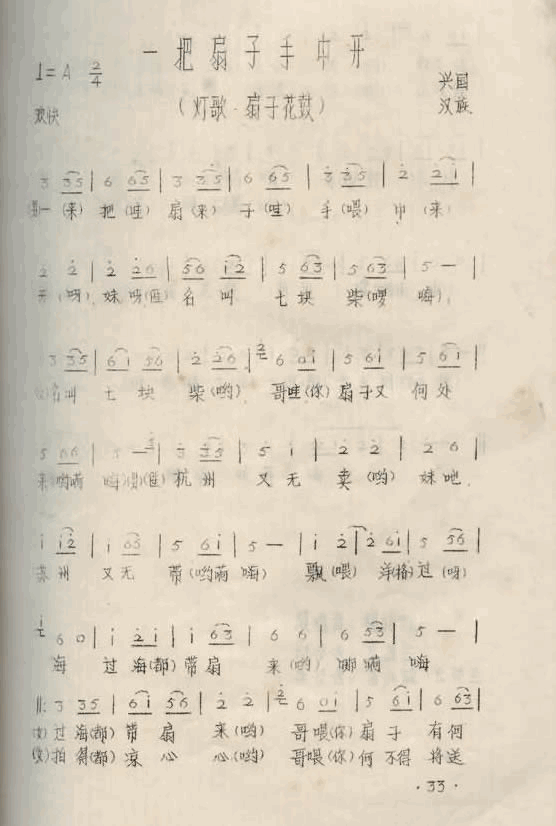 一把扇子手中开
1=A 2/4
（灯歌·扇子花鼓）
兴国
汉族
欢快
3 35 | 6 65 | 3 35 | 6 65 | 3 35 | 2 21 |
(男)一(来) 把(哇) 扇(来) 子(哇) 手(喂) 巾(来)
2 2 | 2 26 | 56 12 | 5 63 | 5 63 | 5 — |
开(呀) 妹呀(匡) 名叫 七块 柴(嘤 嗨)
3 35 | 61 56 | 2 26 | 6 01 | 5 61 | 5 61 |
(女)名叫 七块 柴(哟) 哥哇(你) 扇子又 何处
5 66 | 5 — | 3 35 | 5 1 | 2 2 | 2 6 |
来(哟嗬 嗨)(男)(匡) 杭州 又无 卖(哟) 妹吔
1 12 | 1 63 | 5 61 | 5 — | 1 2 | 2 61 | 5 56 |
苏州 又无 带(哟嗬 嗨) 飘(喂) 洋(格)过(呀)
6 0 | 1 21 | 1 63 | 6 6 | 6 53 | 5 — |
海 过海(都) 带扇 来(哟) 哪嗬 嗨
‖: 3 35 | 61 56 | 2 2 | 6 01 | 5 61 | 6 63 |
(女)过海(都) 带扇 来(哟) 哥喂(你) 扇子 有何
(女)拍得(都) 凉心 心(哟) 哥喂(你) 何不得 将送
·33·